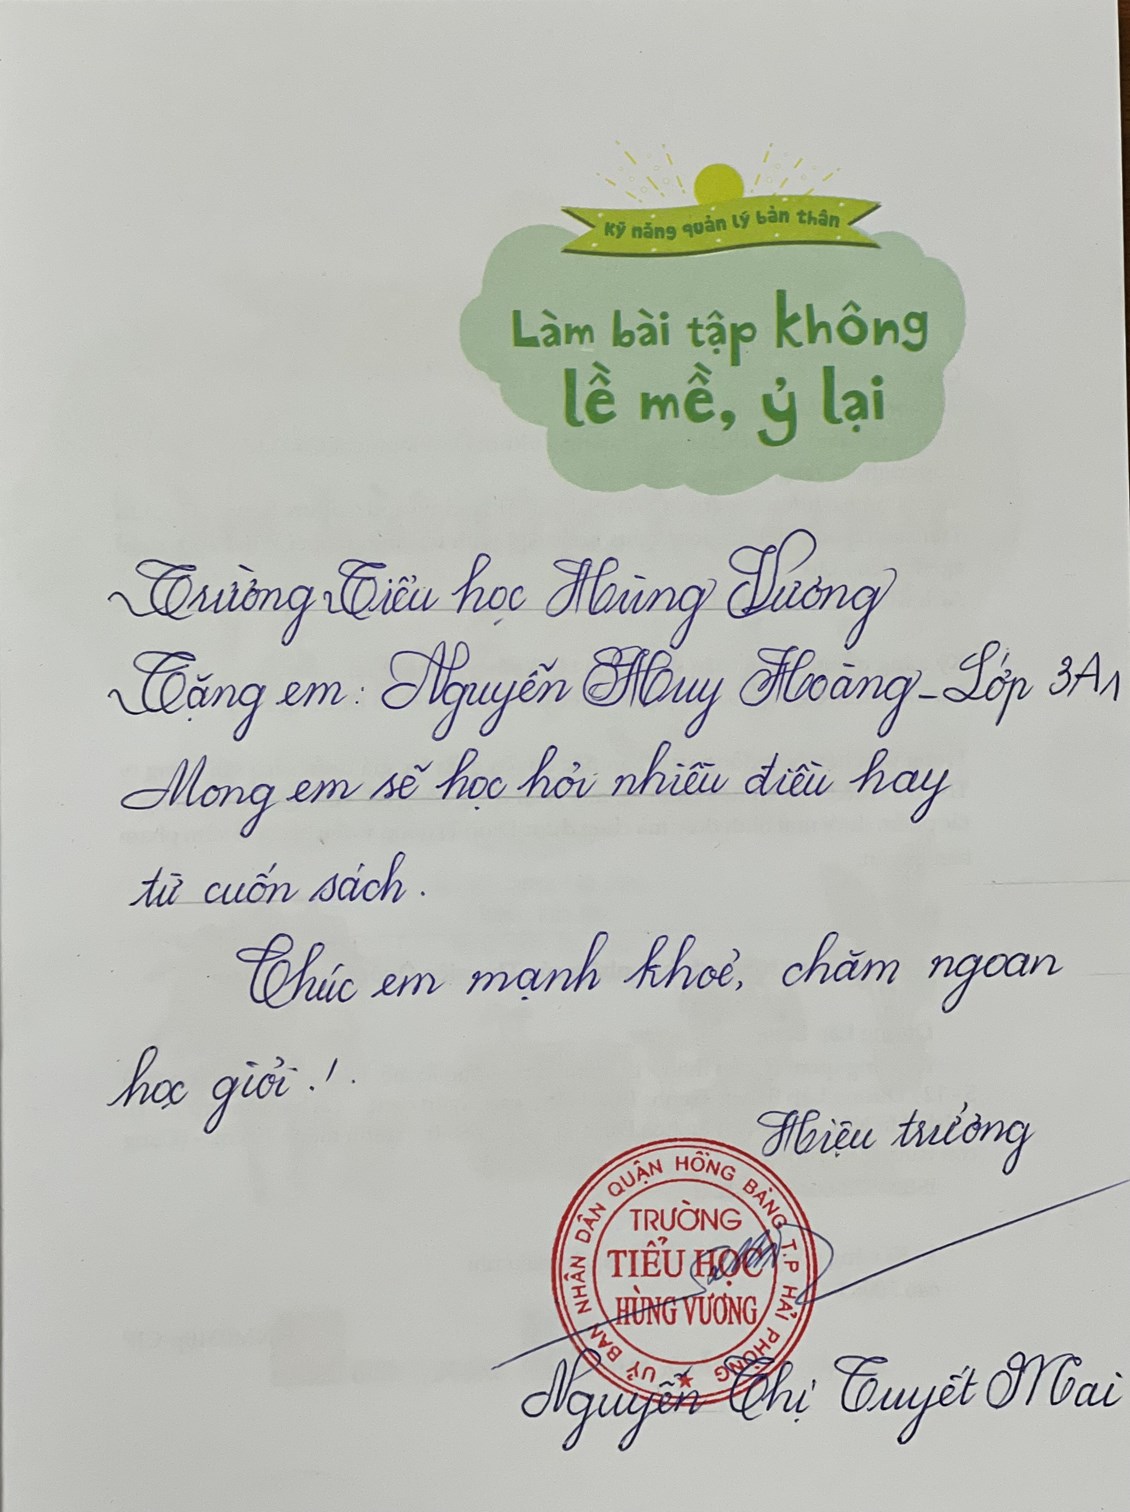 Kỹ năng quản lý bản thân
Làm bài tập không
lề mề, ỷ lại
Trường Tiểu học Hùng Vương
Tặng em: Nguyễn Huy Hoàng - Lớp 3A1
Mong em sẽ học hỏi nhiều điều hay
từ cuốn sách.
Chúc em mạnh khoẻ, chăm ngoan
học giỏi.!.
Hiệu trưởng
UỶ BAN NHÂN DÂN QUẬN HỒNG BÀNG T.P HẢI PHÒNG
TRƯỜNG
TIỂU HỌC
HÙNG VƯƠNG
Nguyễn Thị Tuyết Mai